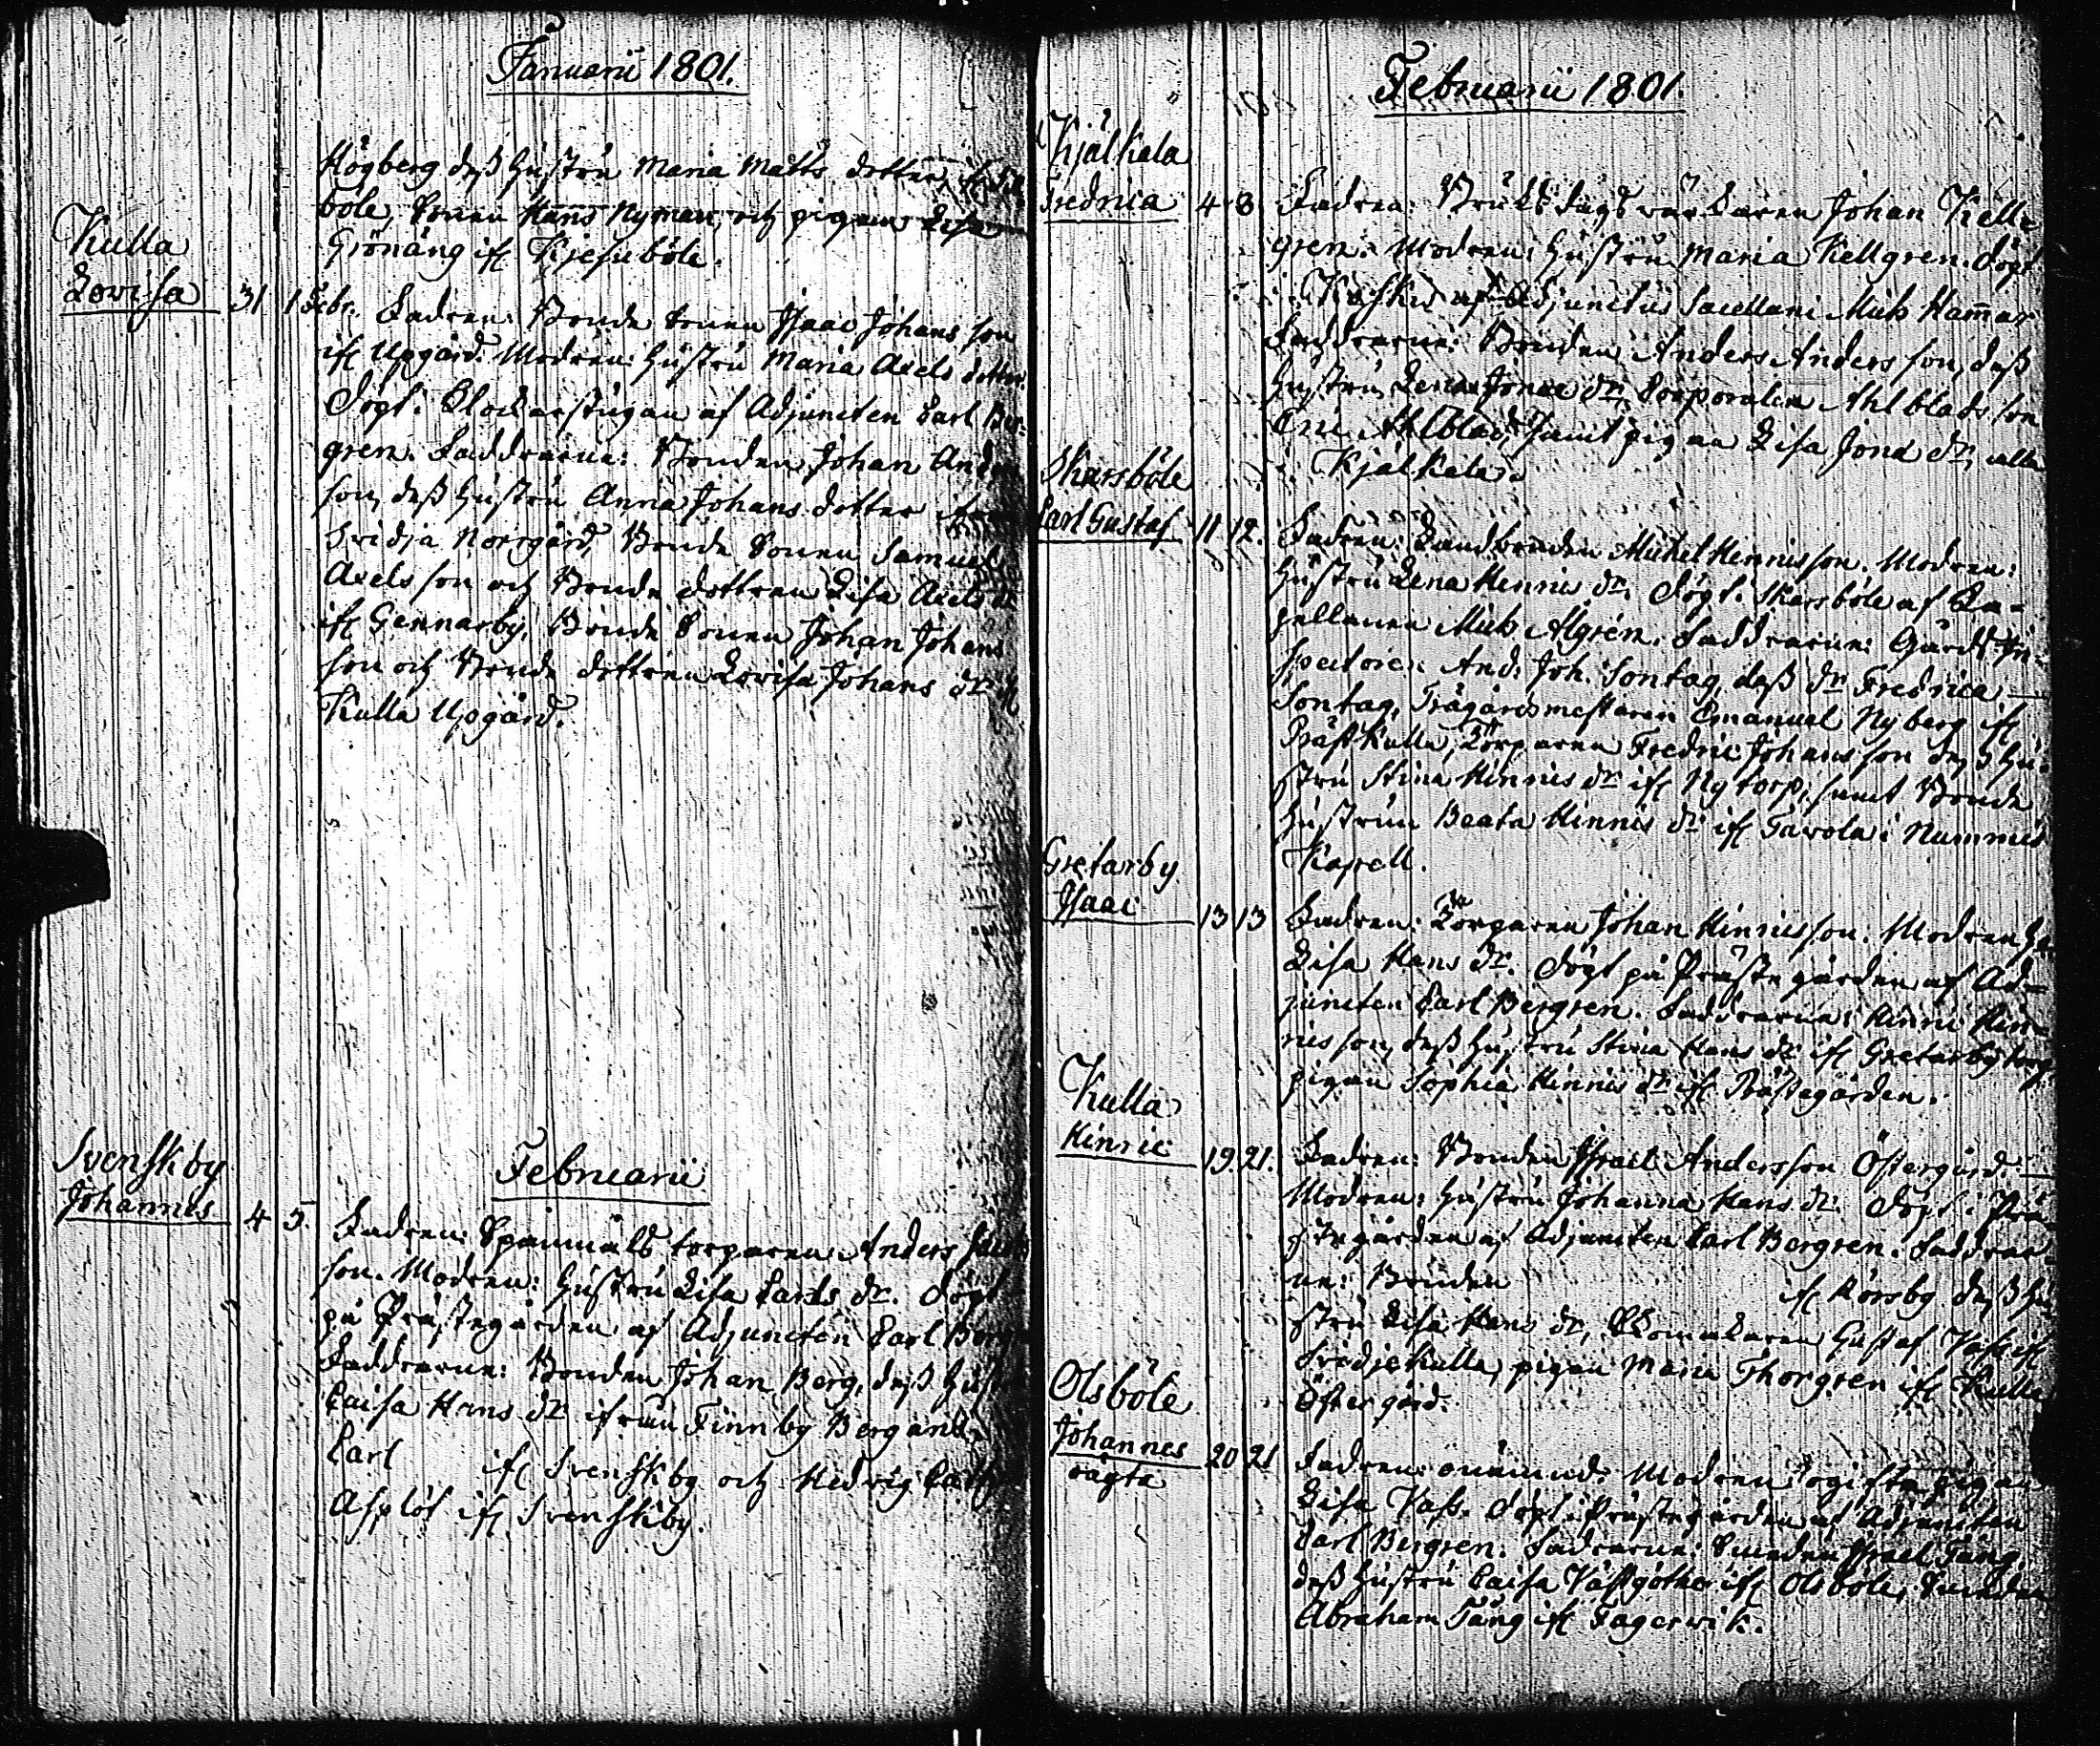 Januarii 1801.
Högberg dess hustru Maria Matts dotter, ifr
bole, Sonen Hans Nyman, och pigan Lisa
Grönäng ifr Kjesuböle.
Kulla
Lovisa 31 1 Febr. Fadren: Bonde sonen Isaac Johans son
ifr Upgård. Modren: hustru Maria Axels dotter.
Döpt i Clockarstugan af Adjuncten Carl Ber-
gren. Faddrarne: Bonden Johan Anders
son, dess hustru Anna Johans dotter ifrån
Svidja Norrgård, Bonde Sonen Samuel
Axels son och Bonde dottren Lisa Axels dr
ifr Gennarby, Bonde Sonen Johan Johans
son och Bonde dottren Lovisa Johans dr ifr
Kulla Upgård.
Februarii
Svenskby
Johannes 4 5. Fadren: Spanmåls torparen Anders Jacobs
son. Modren: hustru Lisa Carls dr. Döpt
på Prästegården af Adjuncten Carl Bergr
Faddrarne: Bonden Johan Berg, dess hust
Caisa Hans dr ifrån Finnby Bergans,
Carl ifr Svenskby och Hedvig
Asplöf ifr Svenskby.
Februarii 1801.
Kjälkala
Fredrica 4 8 Fadren: Bruks Johan Kell-
gren. Modren: hustru Maria Kellgren. Döpt
i Koskis af Adjunctus Sacellani Mich Hammar
Faddrarne: Bonden Anders Anders son, dess
hustru Lena Jonæ dr, Corporalen Ahlblads son
Eric Ahlblad, samt pigan Lisa Jonæ dr, alla
i Kjälkala.
Skarsböle
Carl Gustaf 11 12. Fadren: Landbonden Michel Henricsson. Modren:
hustru Lena Henrics dr. Döpt i Skarsböle af Ca-
pellanen Mich Algren. Faddrarne: Gårds In-
spectoren And: Joh: Sontag, dess dr Fredrica
Sontag, Trägårdsmestaren Emanuel Nyberg ifr
Prästkulla, Torparen Fredric Johans son dess hu-
stru Stina Hinrics dr ifr Nytorp, samt Bonde
hustrun Beata Hinrics dr ifr Tavola i Nummis
Kapell.
Gretarby
Isaac 13 13 Fadren: Torparen Johan Hinricsson. Modren hu
Lisa Hans dr. Döpt på Prästegården af Ad-
juncten Carl Bergren. Faddrarne: Hinric Hin-
rics son, dess hustru Stina Hans dr ifr Gretarby torp
pigan Sophia Hinrics dr ifr Prästegården.
Kulla
Hinric 19. 21. Fadren: Bonden Israel Andersson Östergård
Modren: hustru Johanna Hans dr. Döpt i Prä-
stegården af Adjuncten Carl Bergren. Faddrar
ne: Bonden ifr Rörsby dess hu
stru Lisa Hans dr, Skomakaren Gustaf Vass ifr
Svidjekulla, pigan Maria Thorgren ifr Kulla
Östergård.
Olsböle
Johannes 20 21 Fadren: onämnd. Modren ogifta pigan
oägta
Lisa Vass. Döpt i Prästegården af Adjuncten
Carl Bergren. Fadrarne: Smeden Israel Tång
dess hustru Caisa Västgöthe ifr Olsböle, Smeden
Abraham Tång ifr Fagervik.